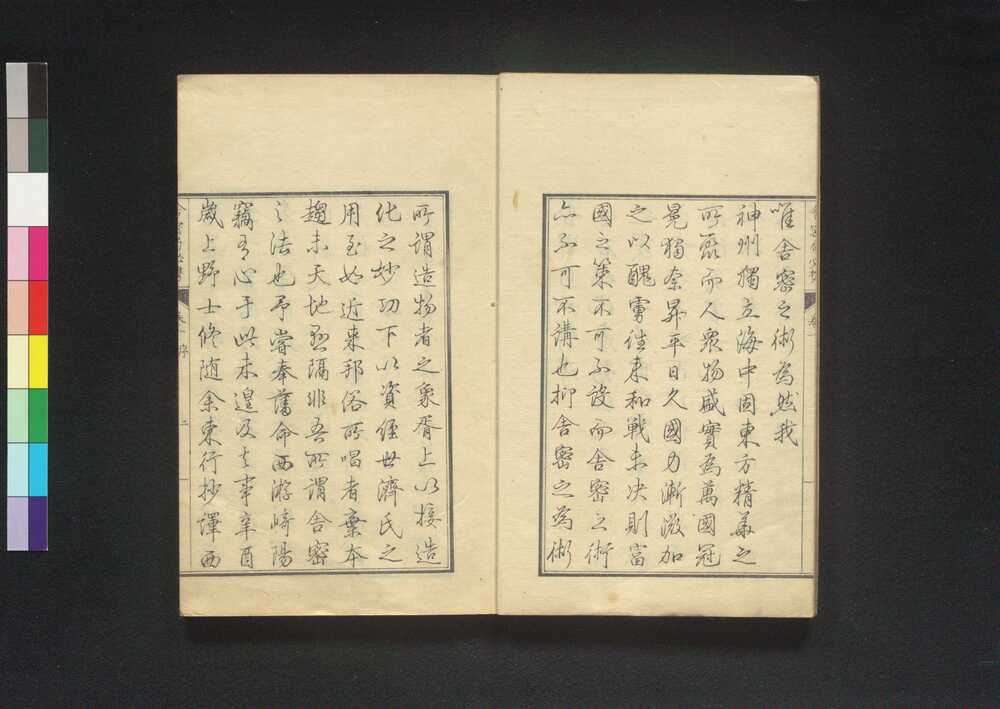 唯舎密之術為然我
神州獨立海中固東方精華之
所聚而人衆物盛實為萬國冠
冕獨奈昇平日久國力漸微加
之以醜虜往来和戦未决則富
國之策不可不設而舎密之術
亦不可不講也抑舎密之為術
所謂造物者之象胥上以接造
化之妙功下以資經世濟民之
用至如近来邦俗所唱者棄本
趨末天地懸隔非吾所謂舎密
之法也予嘗奉藩命西游崎陽
竊有心于此未遑及其事辛酉
歳上野士修随余東行抄譯西